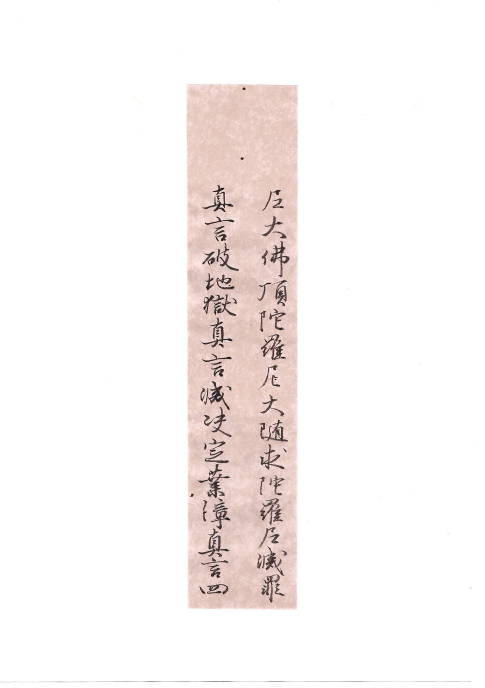 尼大佛頂陀羅尼大随求陀羅尼滅罪
真言破地獄真言滅决定業障真言四